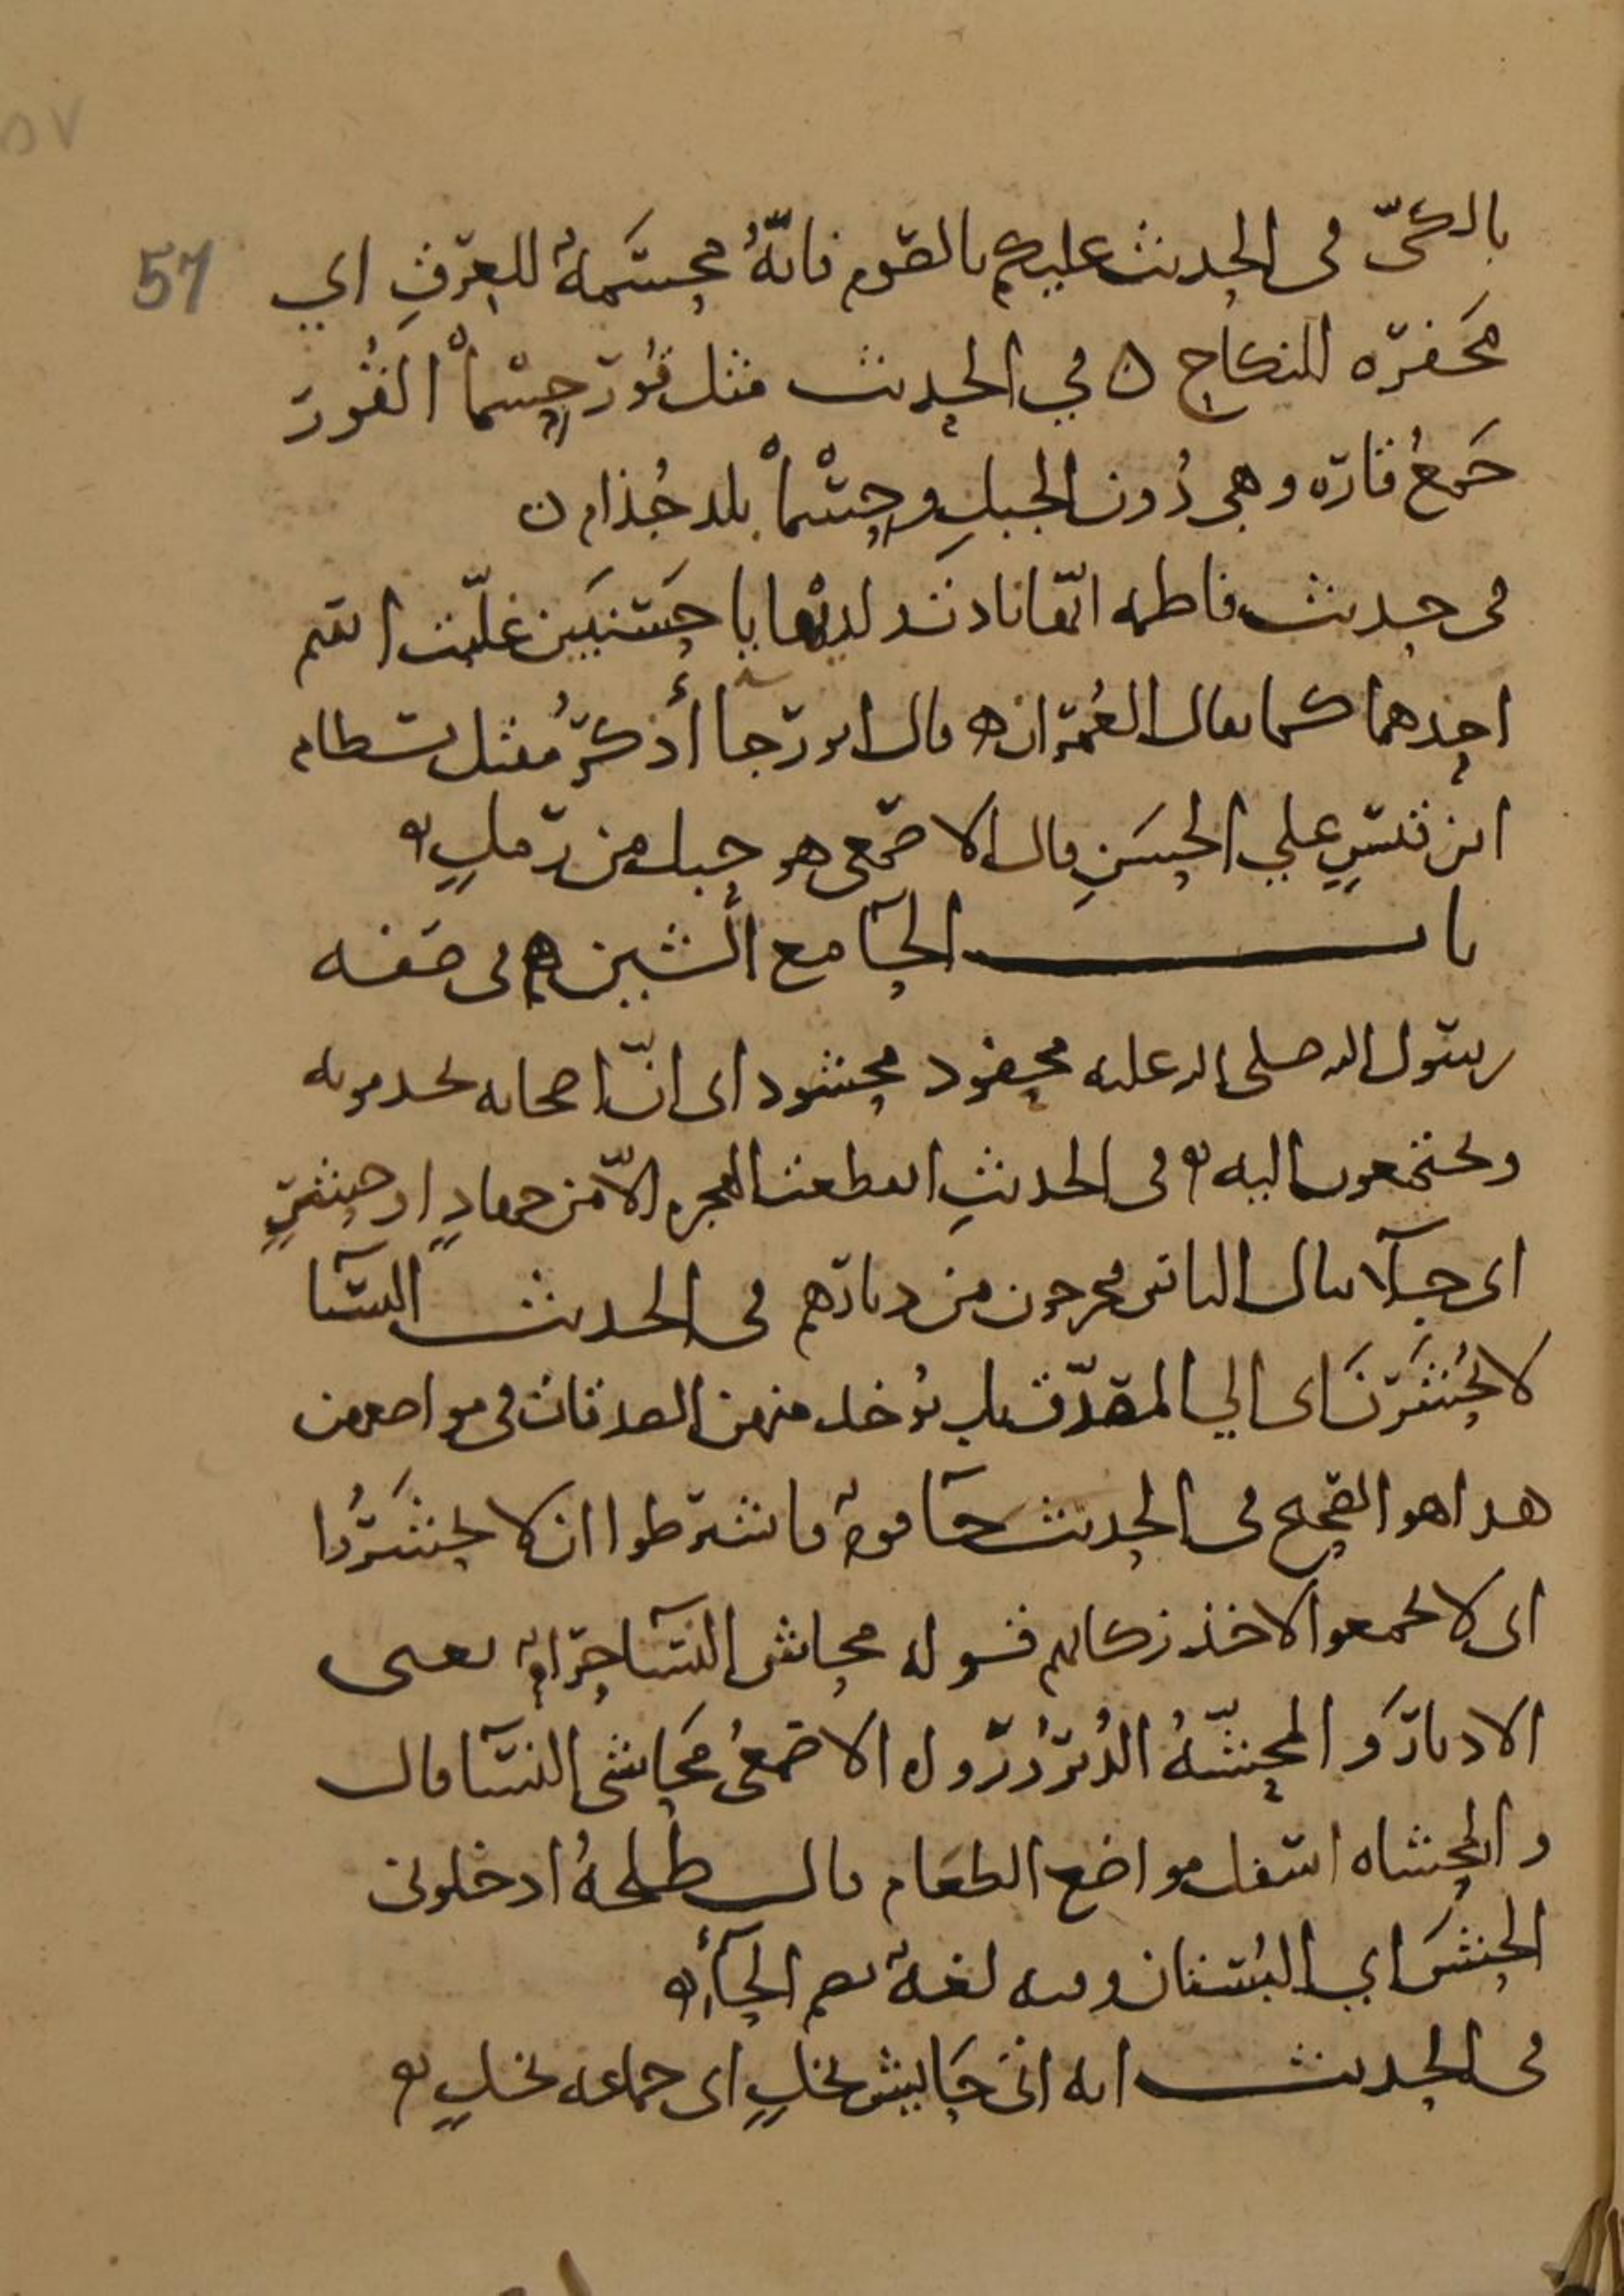 ٥٧
57
بالكيّ في الحديث عليكم بالصوم فانّهُ محسَمةٌ للعِرقِ اي
مَحفره للنكاح ه في الحديث مثل قُور حِسْمأ القُور
جَمعُ قاره وهي دُون الجبلِ وحِسْمأ بلد جُذام ه
في حديث فاطمه انّها نادت لديها يا حَسَنَين غلّبت اسم
احدهما كما يقال العُمَران ه قال ابو رجآ أذكرُ مقتل بسطام
ابن قيسٍ علي الحَسَنِ قال الاصمعي هو حبل من رملٍ ه
باب الحآ مع الشين ه في صفه
رسول الله صلى الله عليه محفود محشود اي انّ اصحابه يخدمونه
ويجتمعون اليه ه في الحديثِ انقطعت الهجره الّا من جهادٍ او حشرٍ
اي جلآ ينال الناس فيخرجون من ديارهم في الحديث النسآ
لا يُحشَرنَ اي الي المصدّق بل يُوخذ منهن الصدقات في مواضعهن
هذا هو الصحيح في الحديث حآ قومٌ فاشترطوا ان لا يُحشَرُوا
اي لا يجمعوا لاخذ زكاتهم قوله محاش النسآ حرامٌ يعني
الادبارَ والمحشّهُ الدُبُرُ ورَوي الاصمعيُ مَحَاشي النسآ قال
والمحشاه اسفل مواضع الطعام قال طلحهُ ادخلوني
الحشَ اي البُستان وفيه لغهٌ بضم الحآءِ ه
في الحديث انه اتى حَايش نخلٍ اي جماعه نخلٍ ه